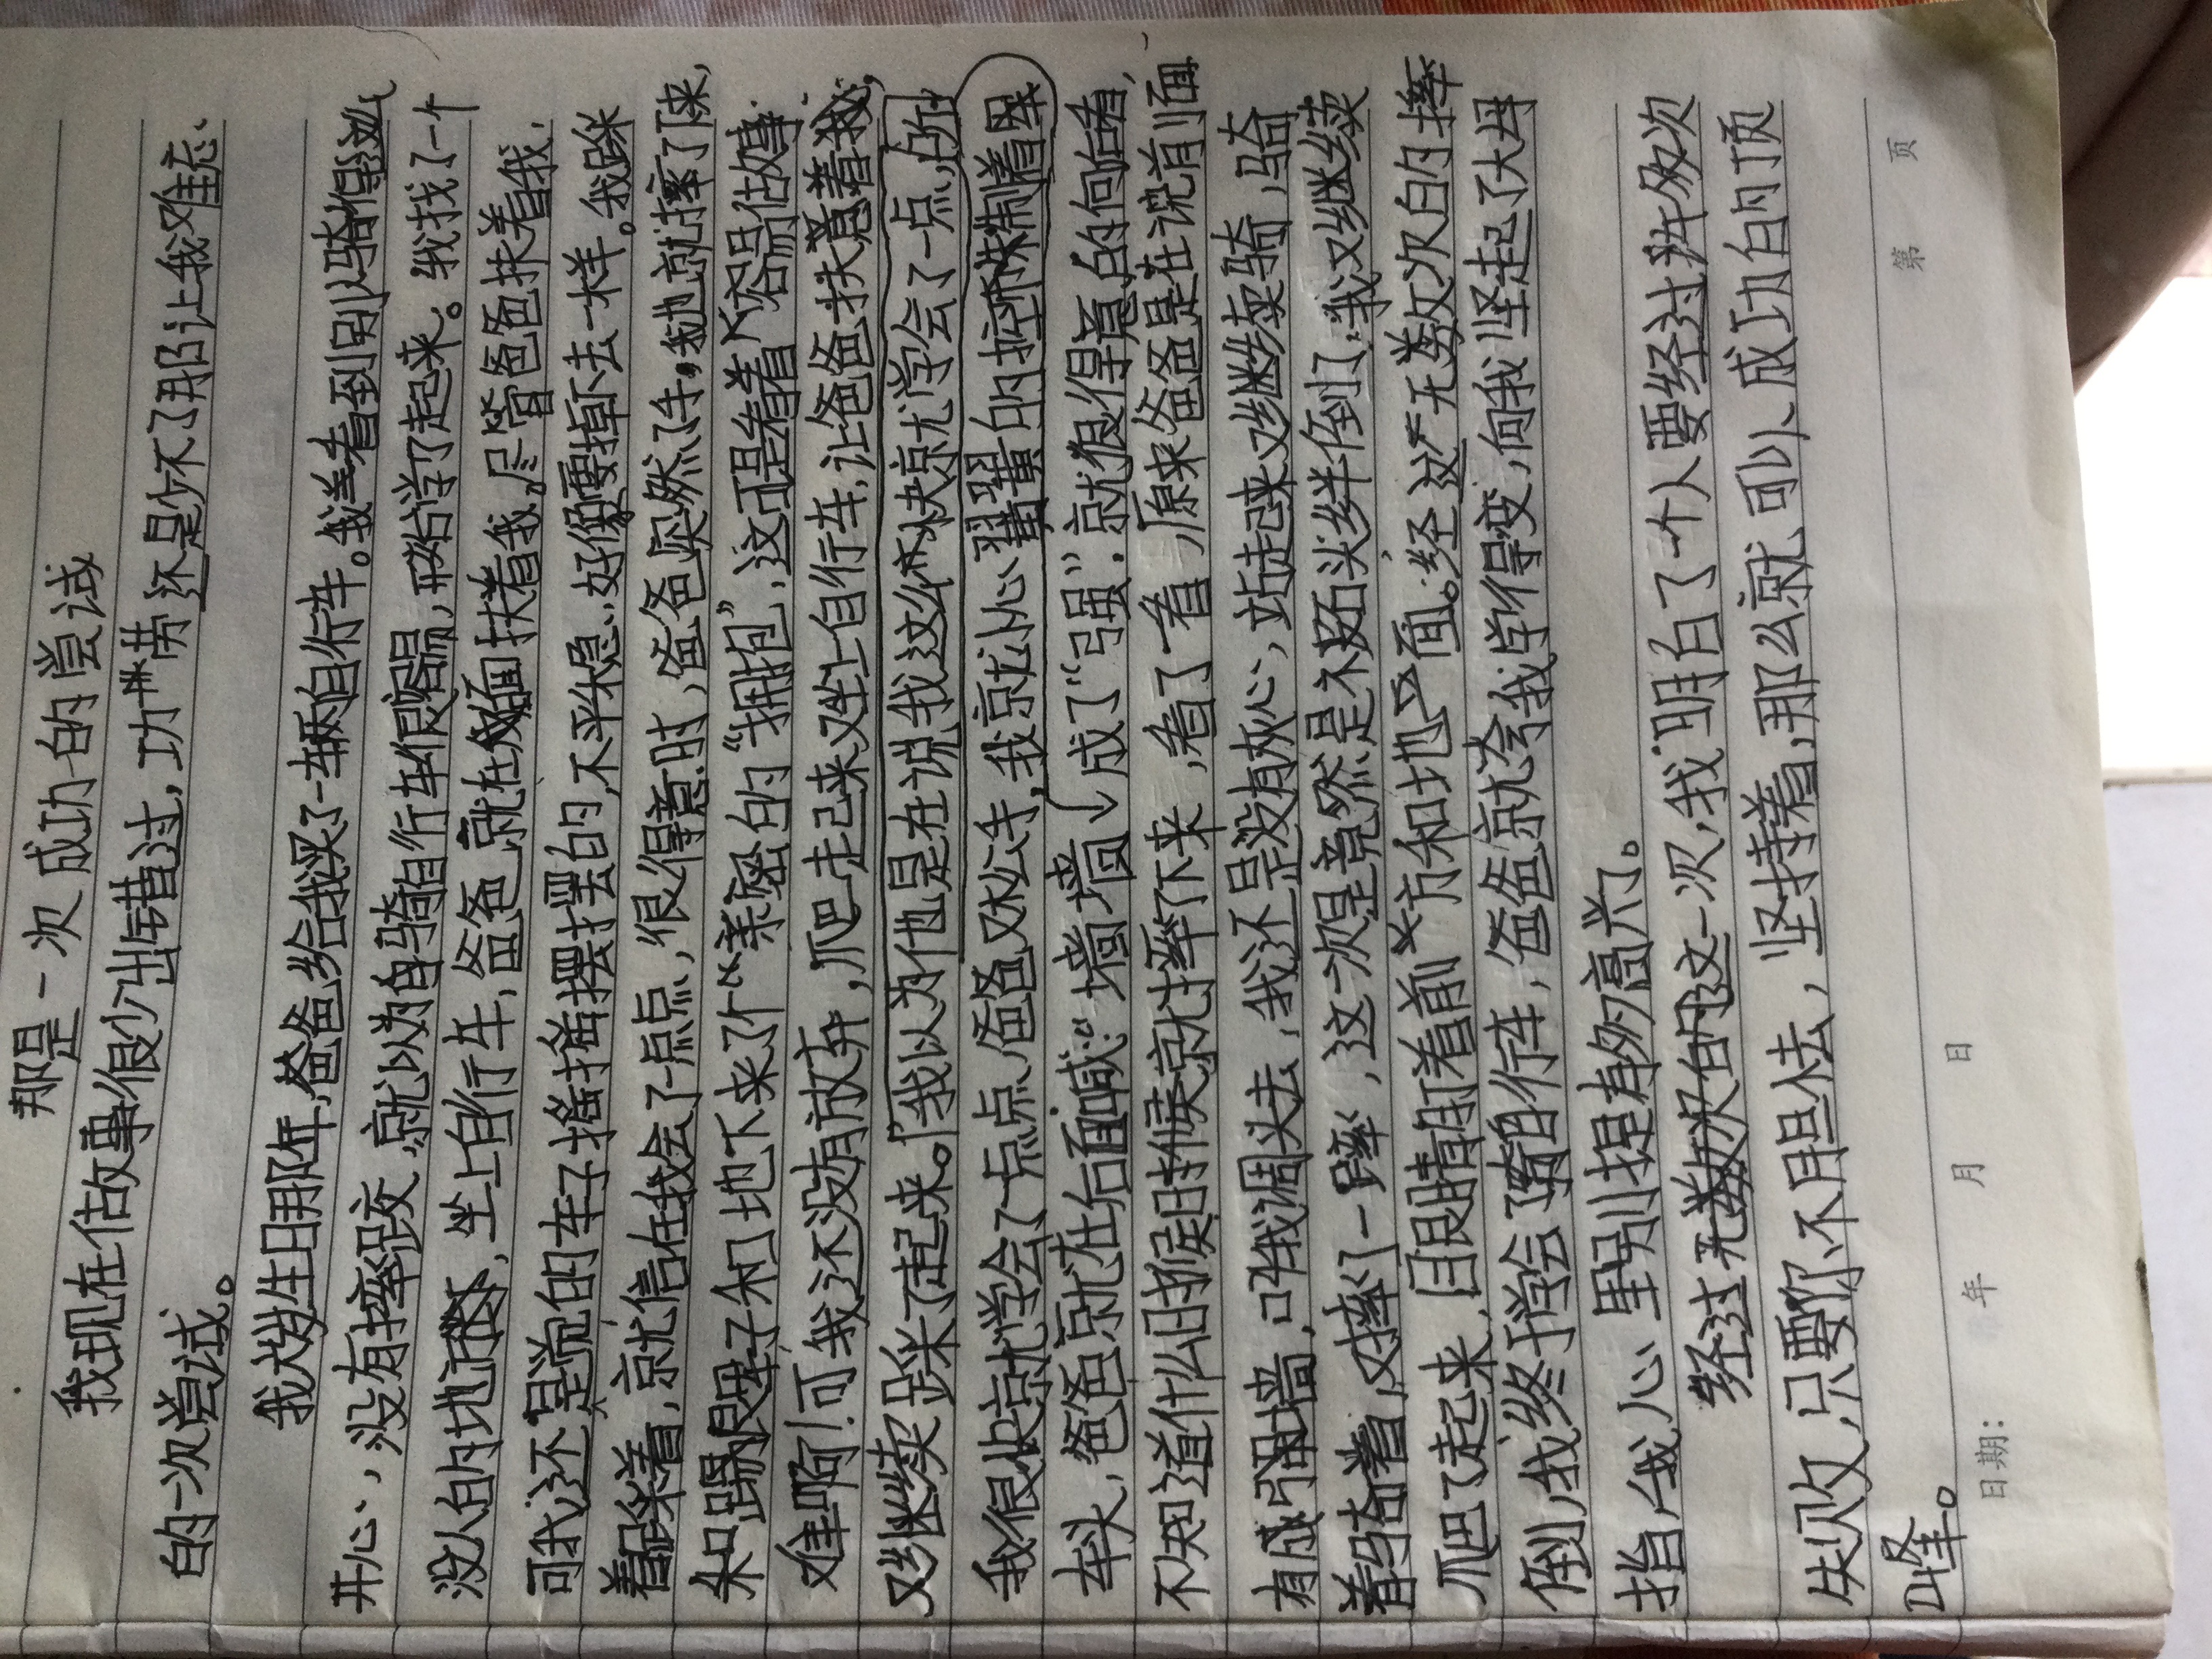 那是一次成功的尝试
我现在做故事很少出错过，功劳还是少不了那让我难忘
的一次尝试。
我大岁生日那年，爸爸给我买了一辆自行车。我羊看到别人骑得那么
开心，没有摔跤，就以为自骑自行车很容易，开始学了起来。我找了一个
没人的地方，坐上自行车，爸爸就在后面扶着我。尽管爸爸扶着我，
可我还不是觉的车子摇摇摆摆的，不平稳，好像要掉下去一样。我踩
着踩着，就信在我会了一点点，很得意时，爸爸突然了手。我也就摔了下来，
朵和地下来了个“亲密的“拥抱”，这可是看着不容易做事
难啊！可我还没有放弃，爬走起来又坐上自行车，让爸爸扶着我，
又继续踩了起来。我以为他是在说我这么快就学会了一点，所
我很快就学会了一点点，爸爸又松手，我就小心翼翼的控制着
车头，爸爸就在后面喊：“墙墙”成了“强”。就很得意的向右看，
不知道什么时候时候就摔了下来，看了一看，原来爸爸是在说前面
有成强墙，叫我调头去，我还是没有灰心，站走起来又继续骑，骑
着骑着，又摔了一跤，这一次是竟然是不被石头绊倒了，我又继续
爬了起来，目眼睛盯着前方和地面。经过无数次的摔
倒，我终于学会了骑自行车，爸爸就夸我学得变，向我坚起了大母
指，我心里别提有多高兴了。
经过无数次的这一次，我明白了一个人要经过许多次
失败，只要你不胆怯，坚持着，那么就可以成功的顶
峰。
日期： 年 月 日
第 页